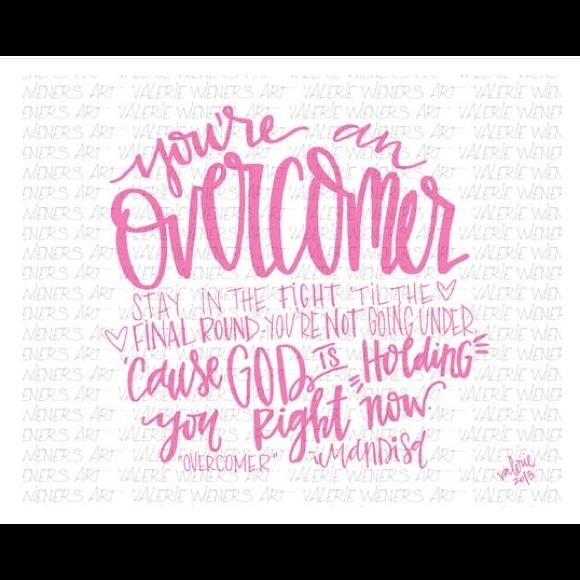 you're an
Overcomer
STAY IN THE FIGHT 'TIL THE
FINAL ROUND-YOU'RE NOT GOING UNDER,
'Cause GOD IS Holding
you Right now.
"OVERCOMER" -MANDISA
valerie
2013
VALERIE WIENERS ART